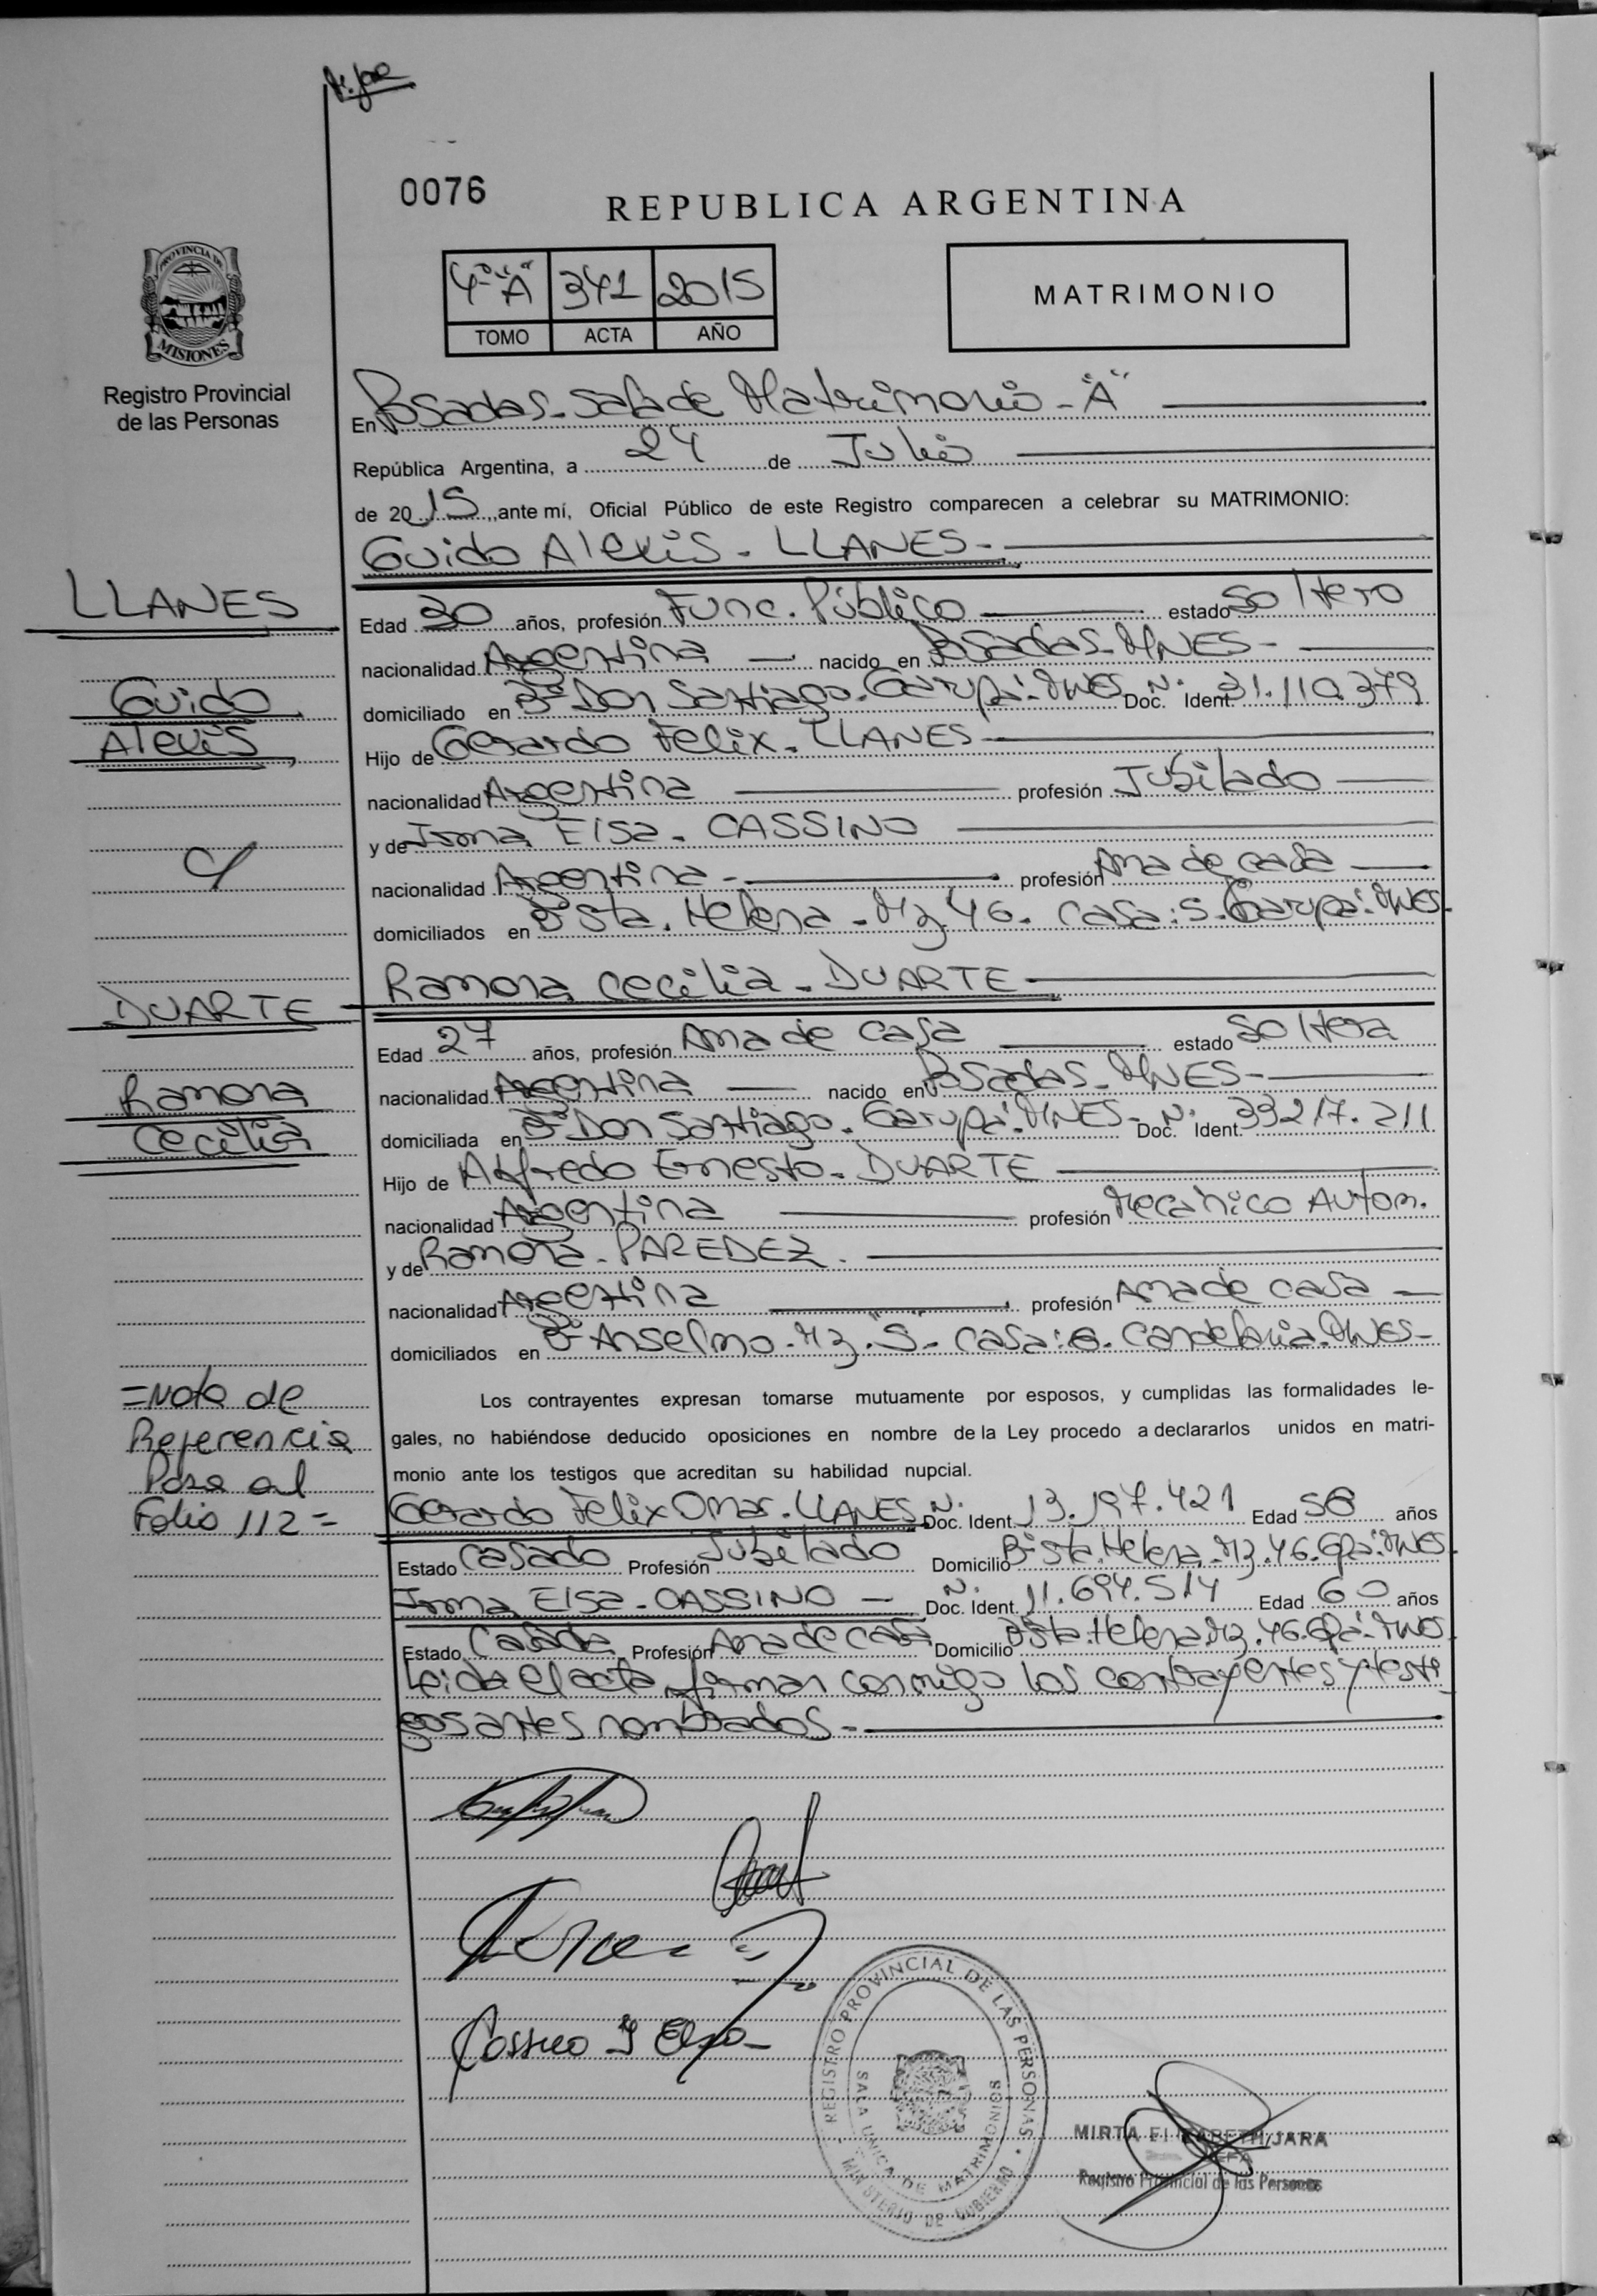 0076
REPUBLICA ARGENTINA
4º "A" 341 2015
TOMO ACTA AÑO
MATRIMONIO
PROVINCIA DE
MISIONES
Registro Provincial
de las Personas
En Posadas - Sala de Matrimonio - "A"
República Argentina, a 24 de Julio
de 2015, ante mí, Oficial Público de este Registro comparecen a celebrar su MATRIMONIO:
Guido Alexis - LLANES -
LLANES
Guido
Alexis
y
Edad 30 años, profesión Func. Público estado Soltero
nacionalidad Argentina nacido en Posadas - MNES -
domiciliado en Bº Don Santiago - Garupá - MNES Doc. Ident. Nº 31.110.379
Hijo de Gerardo Felix - LLANES
nacionalidad Argentina profesión Jubilado
y de Irma Elsa - CASSINO
nacionalidad Argentina - profesión Ama de casa
domiciliados en Bº Sta. Helena - Mz 46 - Casa: 5 - Garupá - MNES -
Ramona Cecilia - DUARTE
DUARTE
Ramona
Cecilia
Edad 27 años, profesión Ama de casa estado Soltera
nacionalidad Argentina nacido en Posadas - MNES -
domiciliada en Bº Don Santiago - Garupá - MNES - Doc. Ident. Nº 33217.211
Hijo de Alfredo Ernesto - DUARTE
nacionalidad Argentina profesión Mecánico Autom.
y de Ramona - PAREDEZ
nacionalidad Argentina profesión Ama de casa
domiciliados en Bº Anselmo - Mz. S - Casa: Candelaria - MNES -
=Nota de
Referencia
Pasa al
Folio 112=
Los contrayentes expresan tomarse mutuamente por esposos, y cumplidas las formalidades le-
gales, no habiéndose deducido oposiciones en nombre de la Ley procedo a declararlos unidos en matri-
monio ante los testigos que acreditan su habilidad nupcial.
Gerardo Felix Omar - LLANES Doc. Ident. Nº 13.197.421 Edad 56 años
Estado Casado Profesión Jubilado Domicilio Bº Sta. Helena - Mz. 46 - Gpá - MNES -
Irma Elsa - CASSINO - Doc. Ident. Nº 11.694.514 Edad 60 años
Estado Casada Profesión Ama de casa Domicilio Bº Sta. Helena - Mz. 46 - Gpá - MNES
Leida el acta, firman conmigo los contrayentes y testi-
gos antes nombrados -
REGISTRO PROVINCIAL DE LAS PERSONAS
SALA UNICA DE MATRIMONIOS
MINISTERIO DE GOBIERNO
MIRTA ELIZABETH JARA
Registro Provincial de las Personas